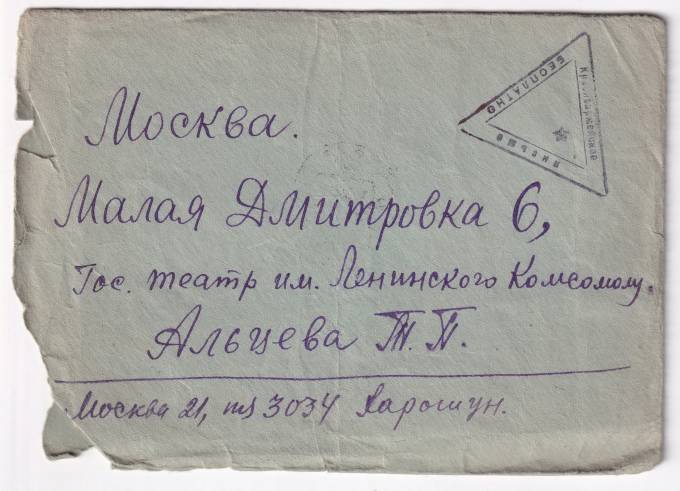 Москва.
Малая Дмитровка 6,
Гос. театр им. Ленинского Комсомолу.
Альцева Т. П.
Москва 21, пя 3034 Харошун.
Красноармейское
письмо
БЕСПЛАТНО